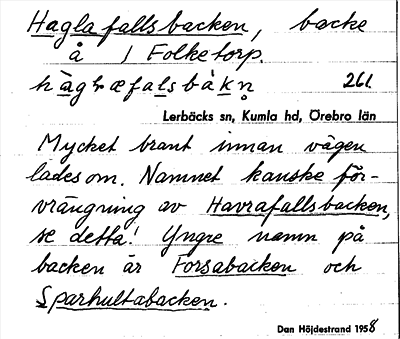 Haglafallsbacken, backe
å 1 Folketorp.
hàgɬæfalsbákn̥ 261.
Lerbäcks sn, Kumla hd, Örebro län
Mycket brant innan vägen
lades om. Namnet kanske för-
vrängning av Havrafallsbacken,
se detta! Yngre namn på
backen är Forsabacken och
Sparhultabacken.
Dan Höjdestrand 1958